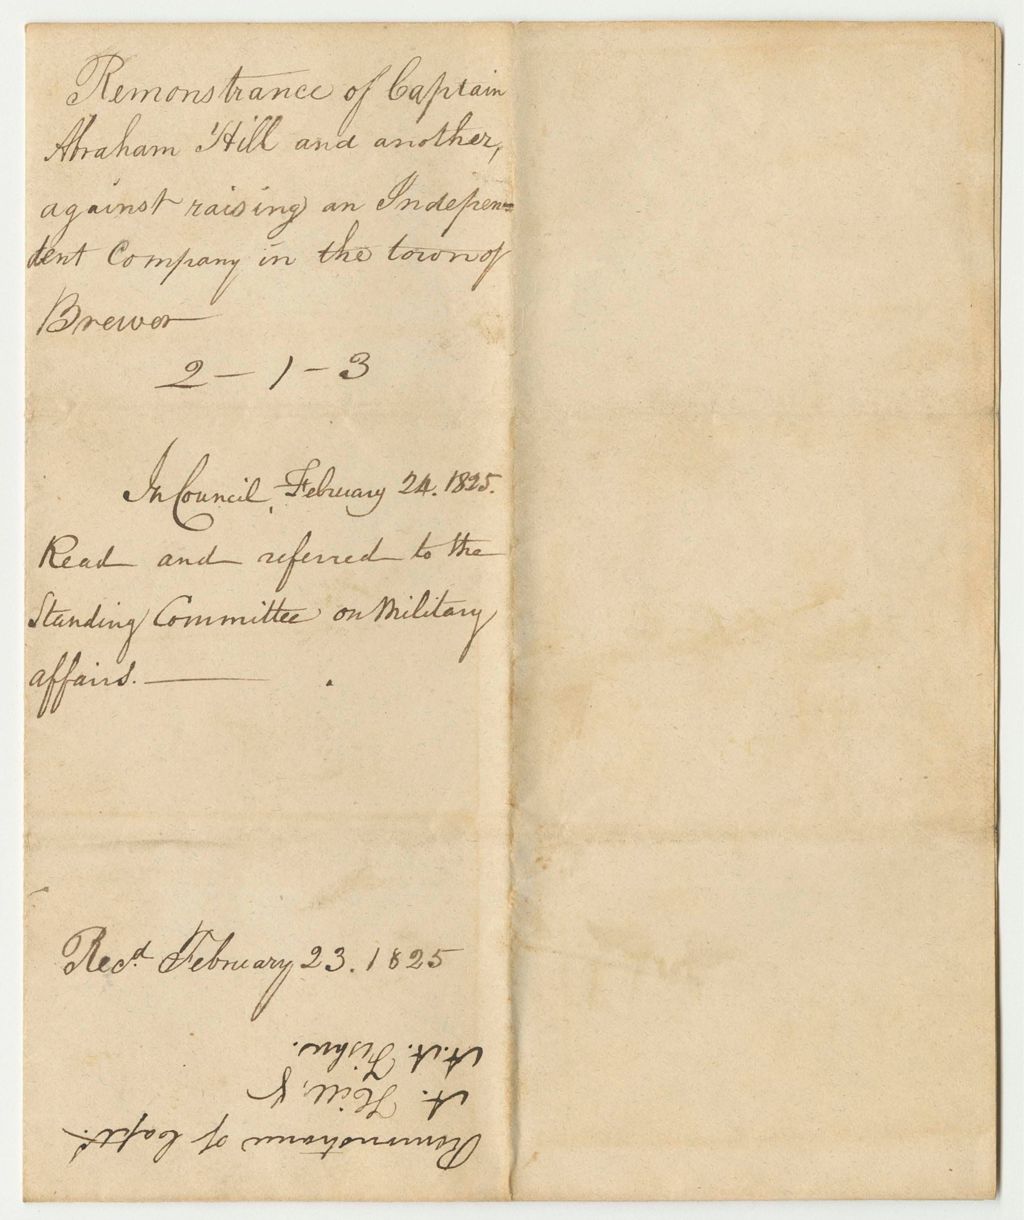 Remonstrance of Captain
Abraham Hill and another,
against raising an Indepen=
dent Company in the town of
Brewer
2 - 1 - 3
In Council, February 24. 1825.
Read and referred to the
Standing Committee on Military
affairs.
Recd. February 23. 1825
Remonstrance of Capt.
A. Hill, &
A. A. Fisher.